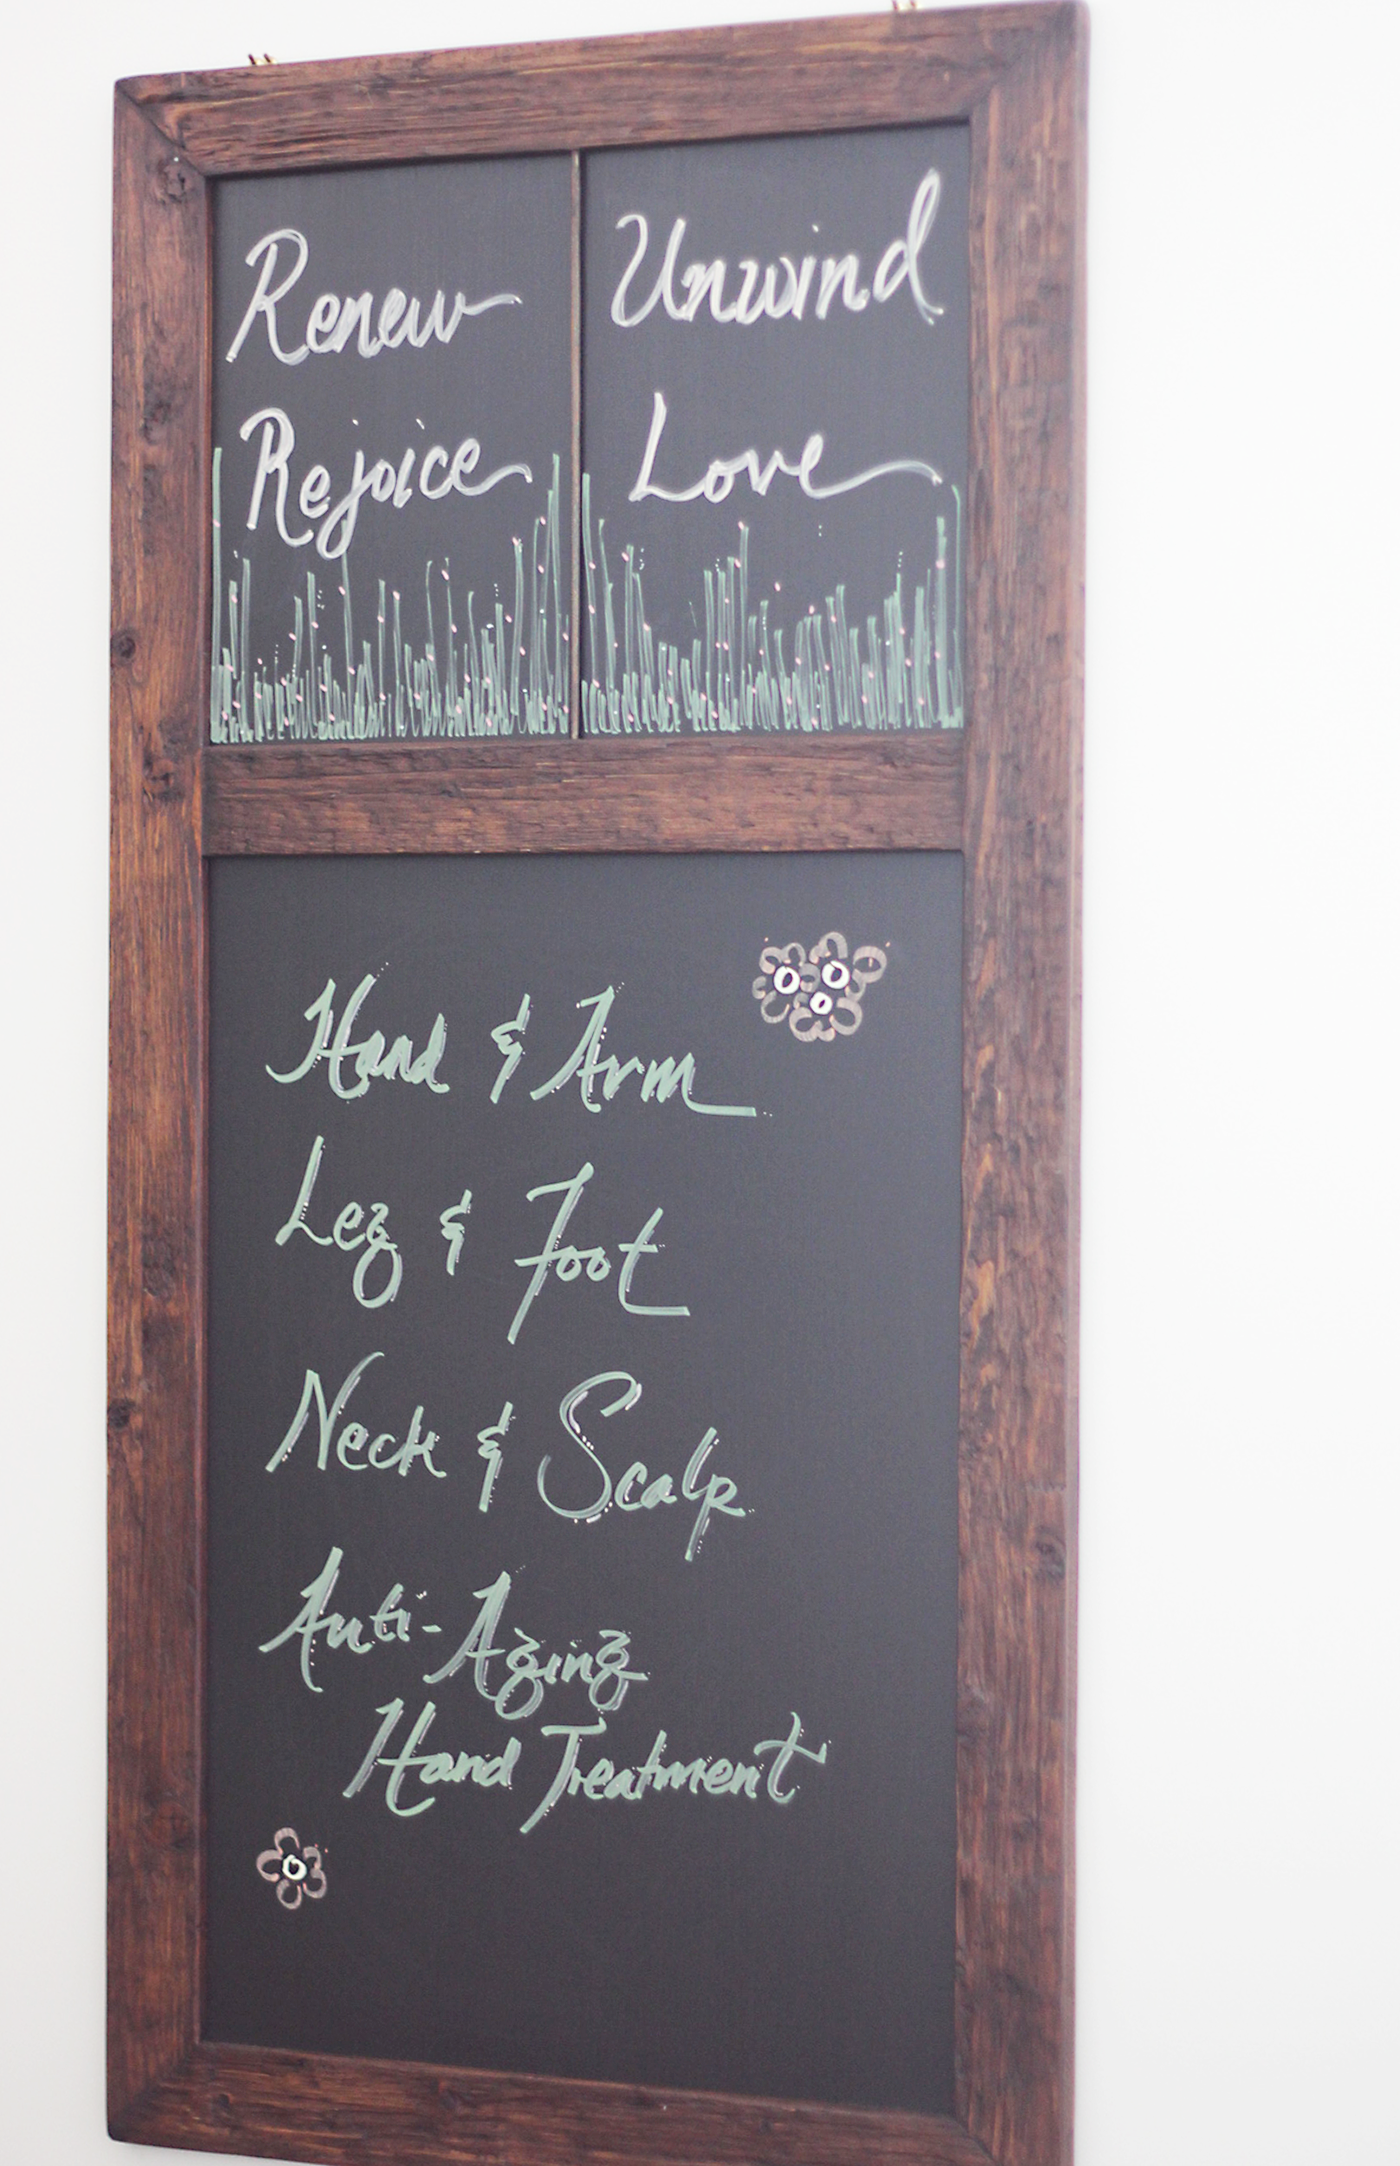 Renew
Rejoice
Unwind
Love
Hand & Arm
Leg & Foot
Neck & Scalp
Anti-Aging
Hand Treatment